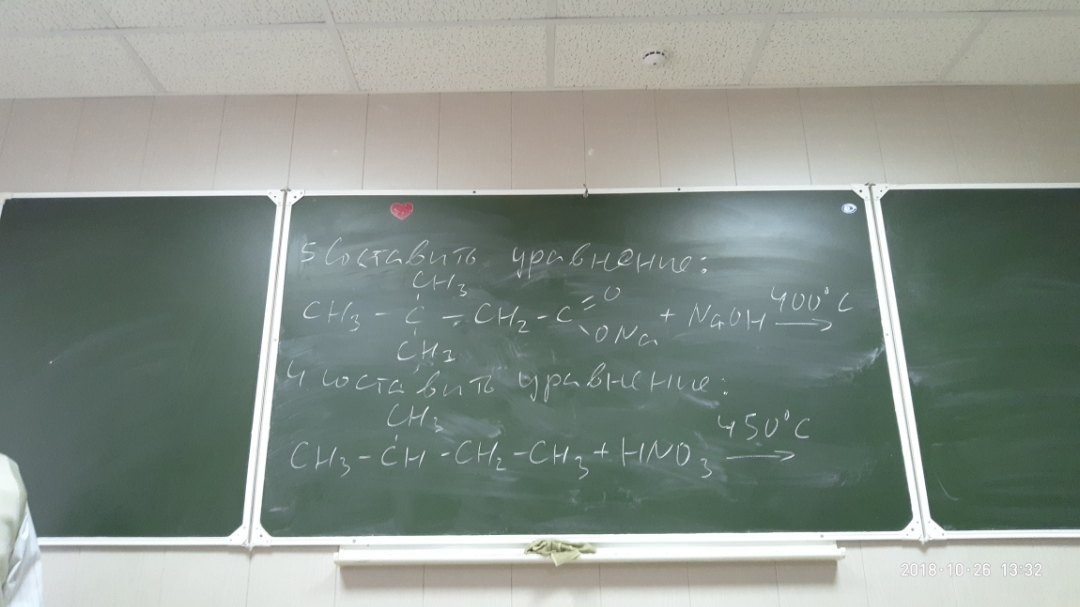 5 Составить уравнение:
CH₃
CH₃ - C - CH₂ - C =O + NaOH 400°C →
ONa
CH₃
4 составить уравнение:
CH₃
CH₃ - CH - CH₂ - CH₃ + HNO₃ 450°C →
2018-10-26 13:32